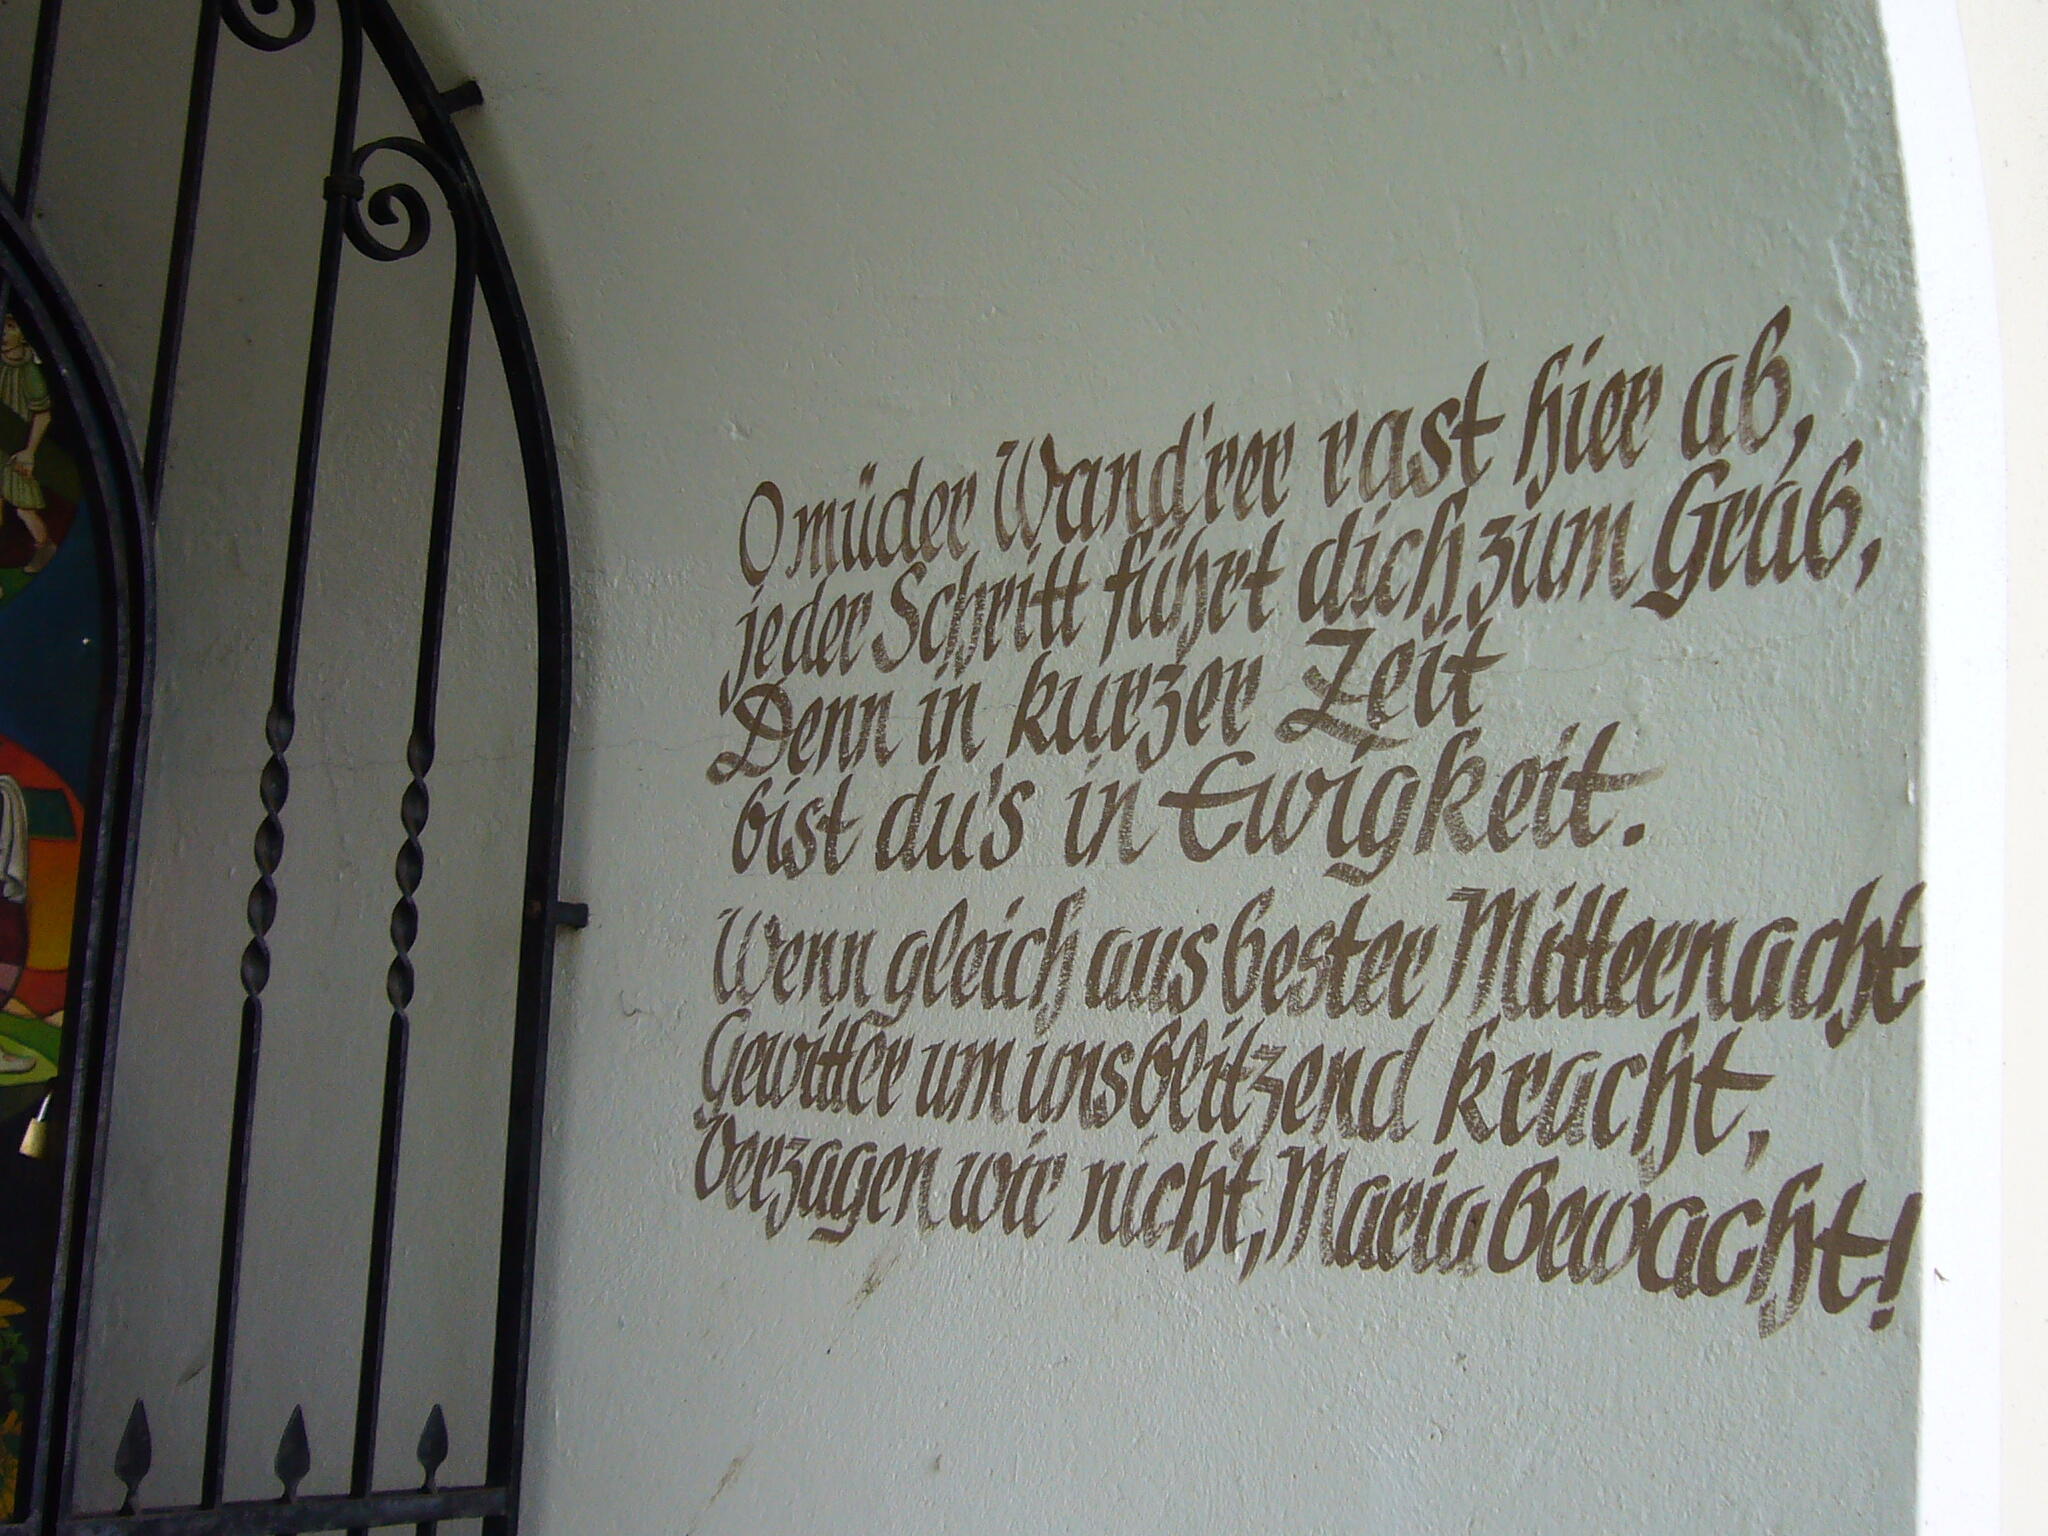 O müder Wand'rer rast hier ab,
jeder Schritt führt dich zum Grab,
Denn in kurzer Zeit
bist du's in Ewigkeit.
Wenn gleich aus bester Mitternacht
Gewitter um uns blitzend kracht,
Verzagen wir nicht, Maria bewacht!